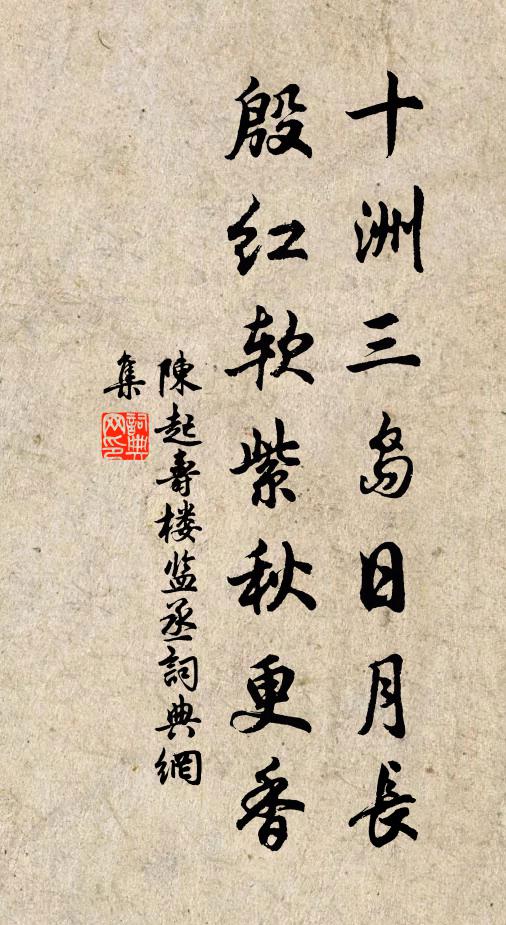 十洲三岛日月長
殷红软紫秋更香
陳起壽楼监丞詞典網
集
詞典
网印